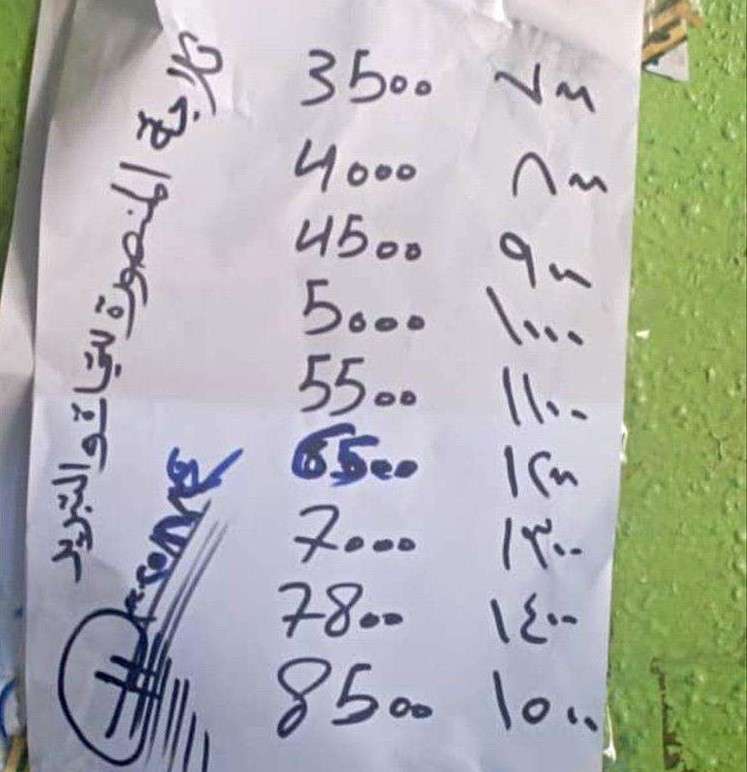 3500 ٧٠٠
4000 ٨٠٠
4500 ٩٠٠
5000 ١٠٠٠
5500 ١١٠٠
6500 ١٢٠٠
7000 ١٣٠٠
7800 ١٤٠٠
8500 ١٥٠٠
ثلاجة المنصورة للتبريد